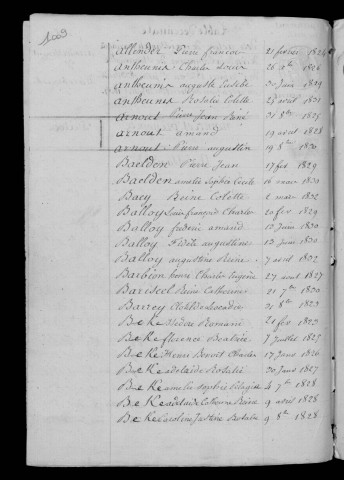 allender Pierre francois 21 fevrier 1824
antheunis Charles Louis 26 1826
antheunis auguste Eusebe 30 Juin 1829
antheunis Rosalie Colette 25 avril 1831
arnout Pierre Jean 31 1825
arnout amand 19 aout 1828
arnout Pierre augustin 19 8bre 1830
Baelden Pierre Jean 17 fev 1829
Baelden amelie Sophie Cecile 16 mars 1830
Baey Reine Colette 2 mars 1832
Balloy Louis françois Charles 10 fev 1829
Balloy amand 10 Juin 1830
Balloy Fidele augustine 13 Juin 1830
Balloy augustine Reine 7 avril 1832
Barbion henri Charles Eugene 27 aout 1827
Catherine 21 7bre 1830
Barrey Clotilde Leocadie 21 8bre 1823
BeKe Isidore Romain 21 fev 1823
BeKe florence Beatrix 7 Juillet 1825
BeKe Henri Benoit Charles 17 Janv 1826
BeKe adelaide Rosalie 30 Janv 1827
BeKe amelie Sophie Pelagie 4 7bre 1828
BeKe adelaide Catherine Reine 9 avril 1828
BeKe Caroline Justine Rosalie 9 8bre 1828